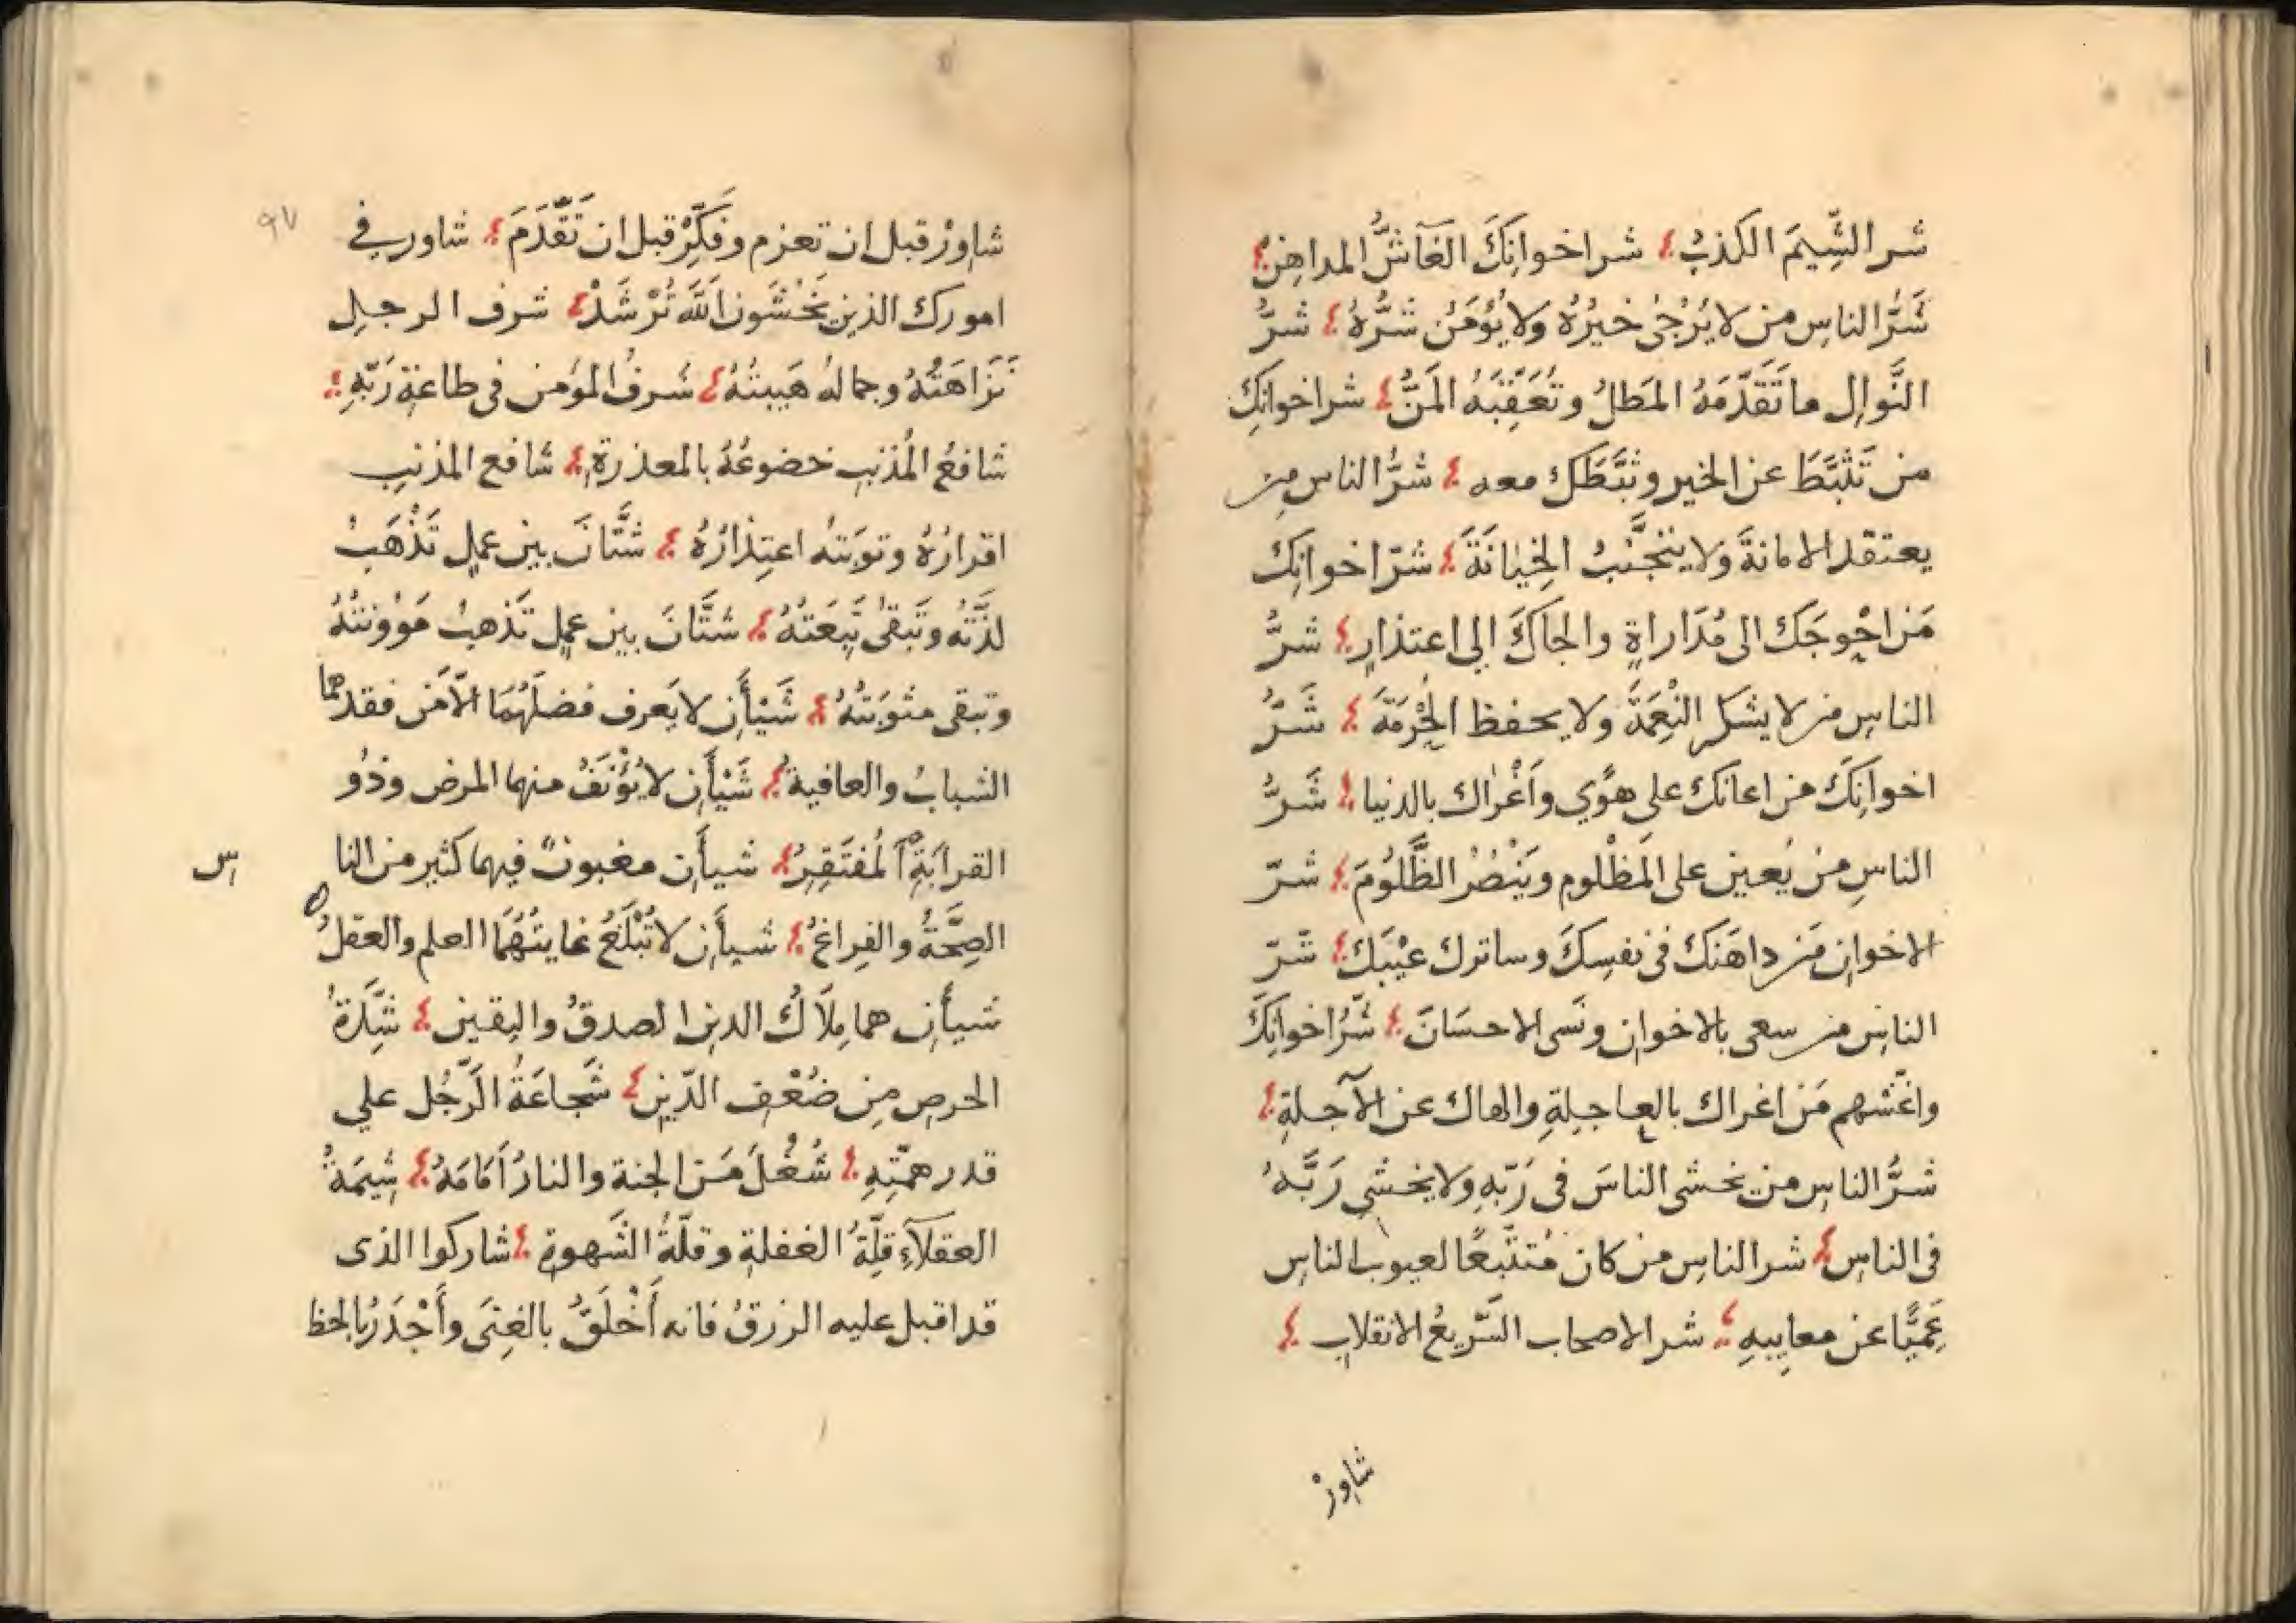 شر الشِّيَمِ الكذبُ شر اخوانِكَ الغَآشُّ المداهِنُ
شَرُّ الناسِ من لا يُرْجٰى خيرُهُ ولا يُؤمَنُ شَرُّهُ شَرُّ
النَّوالِ ما تَقَدَّمَهُ المَطلُ وتُعَقِّبَهُ المَنُّ شر اخوانِكَ
من تَثَبَّطَ عن الخير وثَبَّطَكَ معه شَرُّ الناسِ من
يعتقد الامانةَ ولا يتجنَّبُ الخِيٰانَةَ شرّ اخوانِكَ
مَن احْوجَكَ الى مُدَاراةٍ والجاكَ الى اعتذارٍ شرُّ
الناسِ من لا يشكر النِّعمَةَ ولا يحفظ الحُرْمَةَ شَرُّ
اخوانِكَ من اعانك على هوًي واَغْرٰاك بالدنيا شَرُّ
الناسِ من يُعين على المَظْلومِ ويَنْصُرُ الظَّلُومَ شرّ
الاخوانِ مَن داهَنَكَ في نفسِكَ وساترك عيْبَكَ شَرّ
الناسِ من سعى بالاخوانِ ونَسى الاحسَانَ شَرُّ اخوانِكَ
واغشهم مَن اغراك بالعاجِلةِ والهاك عن الآجلةِ
شرُّ الناسِ من يخشى الناسَ في رَبِّهِ ولا يخشى رَبَّهُ
في الناسِ شر الناسِ من كان مُتتَبِّعًا لعيوبِ الناسِ
عَمِيًّا عن معايبِهِ شر الاصحاب السَّريعُ الانقلابِ
شاوِرْ
٩٧
شاوِرْ قبل ان تعزم وفَكِّرْ قبل ان تَقَّدَمَ شاور في
امورك الذين يَخْشَون اللَّهَ تُرْشَدْ شرف الرجلِ
نَزَاهَتُهُ وجمالهُ هَيبتُهُ شرفُ المؤمن في طاعةِ رَبِّهِ
شافعُ المُذنبِ خضوعُهُ بالمعذرةِ شافع المذنبِ
اقرارُهُ وتوبَتهُ اعتِذارُهُ شَتَّانَ بين عملٍ تَذْهَبُ
لذَّتُه وتَبقىٰ تَبِعَتهُ شتَّانَ بين عملٍ تَذهبُ مَؤُونتُهُ
وتبقى مثوبَتهُ شَيْأَنِ لا يَعرف فضلَهُمَا الّا مَن فقدهما
الشبابُ والعافيةُ شَيْأَنِ لا يُؤنَفُ منهما المرض وذُو
القرابَةِ المُفتَقِرُ شيأَنِ مغبونٌ فيهما كثير من النا
س
الصِحَّةُ والفراغُ شيأَنِ لا تُبْلَغُ غايتُهُمَا العلم والعقلُ
شيأَنِ هما مِلَاكُ الدينِ الصدقُ واليقين شِدَّةُ
الحرصِ مِن ضُعْفِ الدّينِ شَجاعَةُ الرَّجُل علي
قدر همّتِهِ شُغُلَ مَنِ الجنة والنارُ اَمَامَهُ شِيمَةُ
العقلآءِ قِلّةُ الغفلةِ وقلّةُ الشَّهوةِ شاركوا الذى
قد اقبل عليه الرزقُ فانه أَخْلَقُ بالغِنَى وأَجْدَرُ بالحَظ